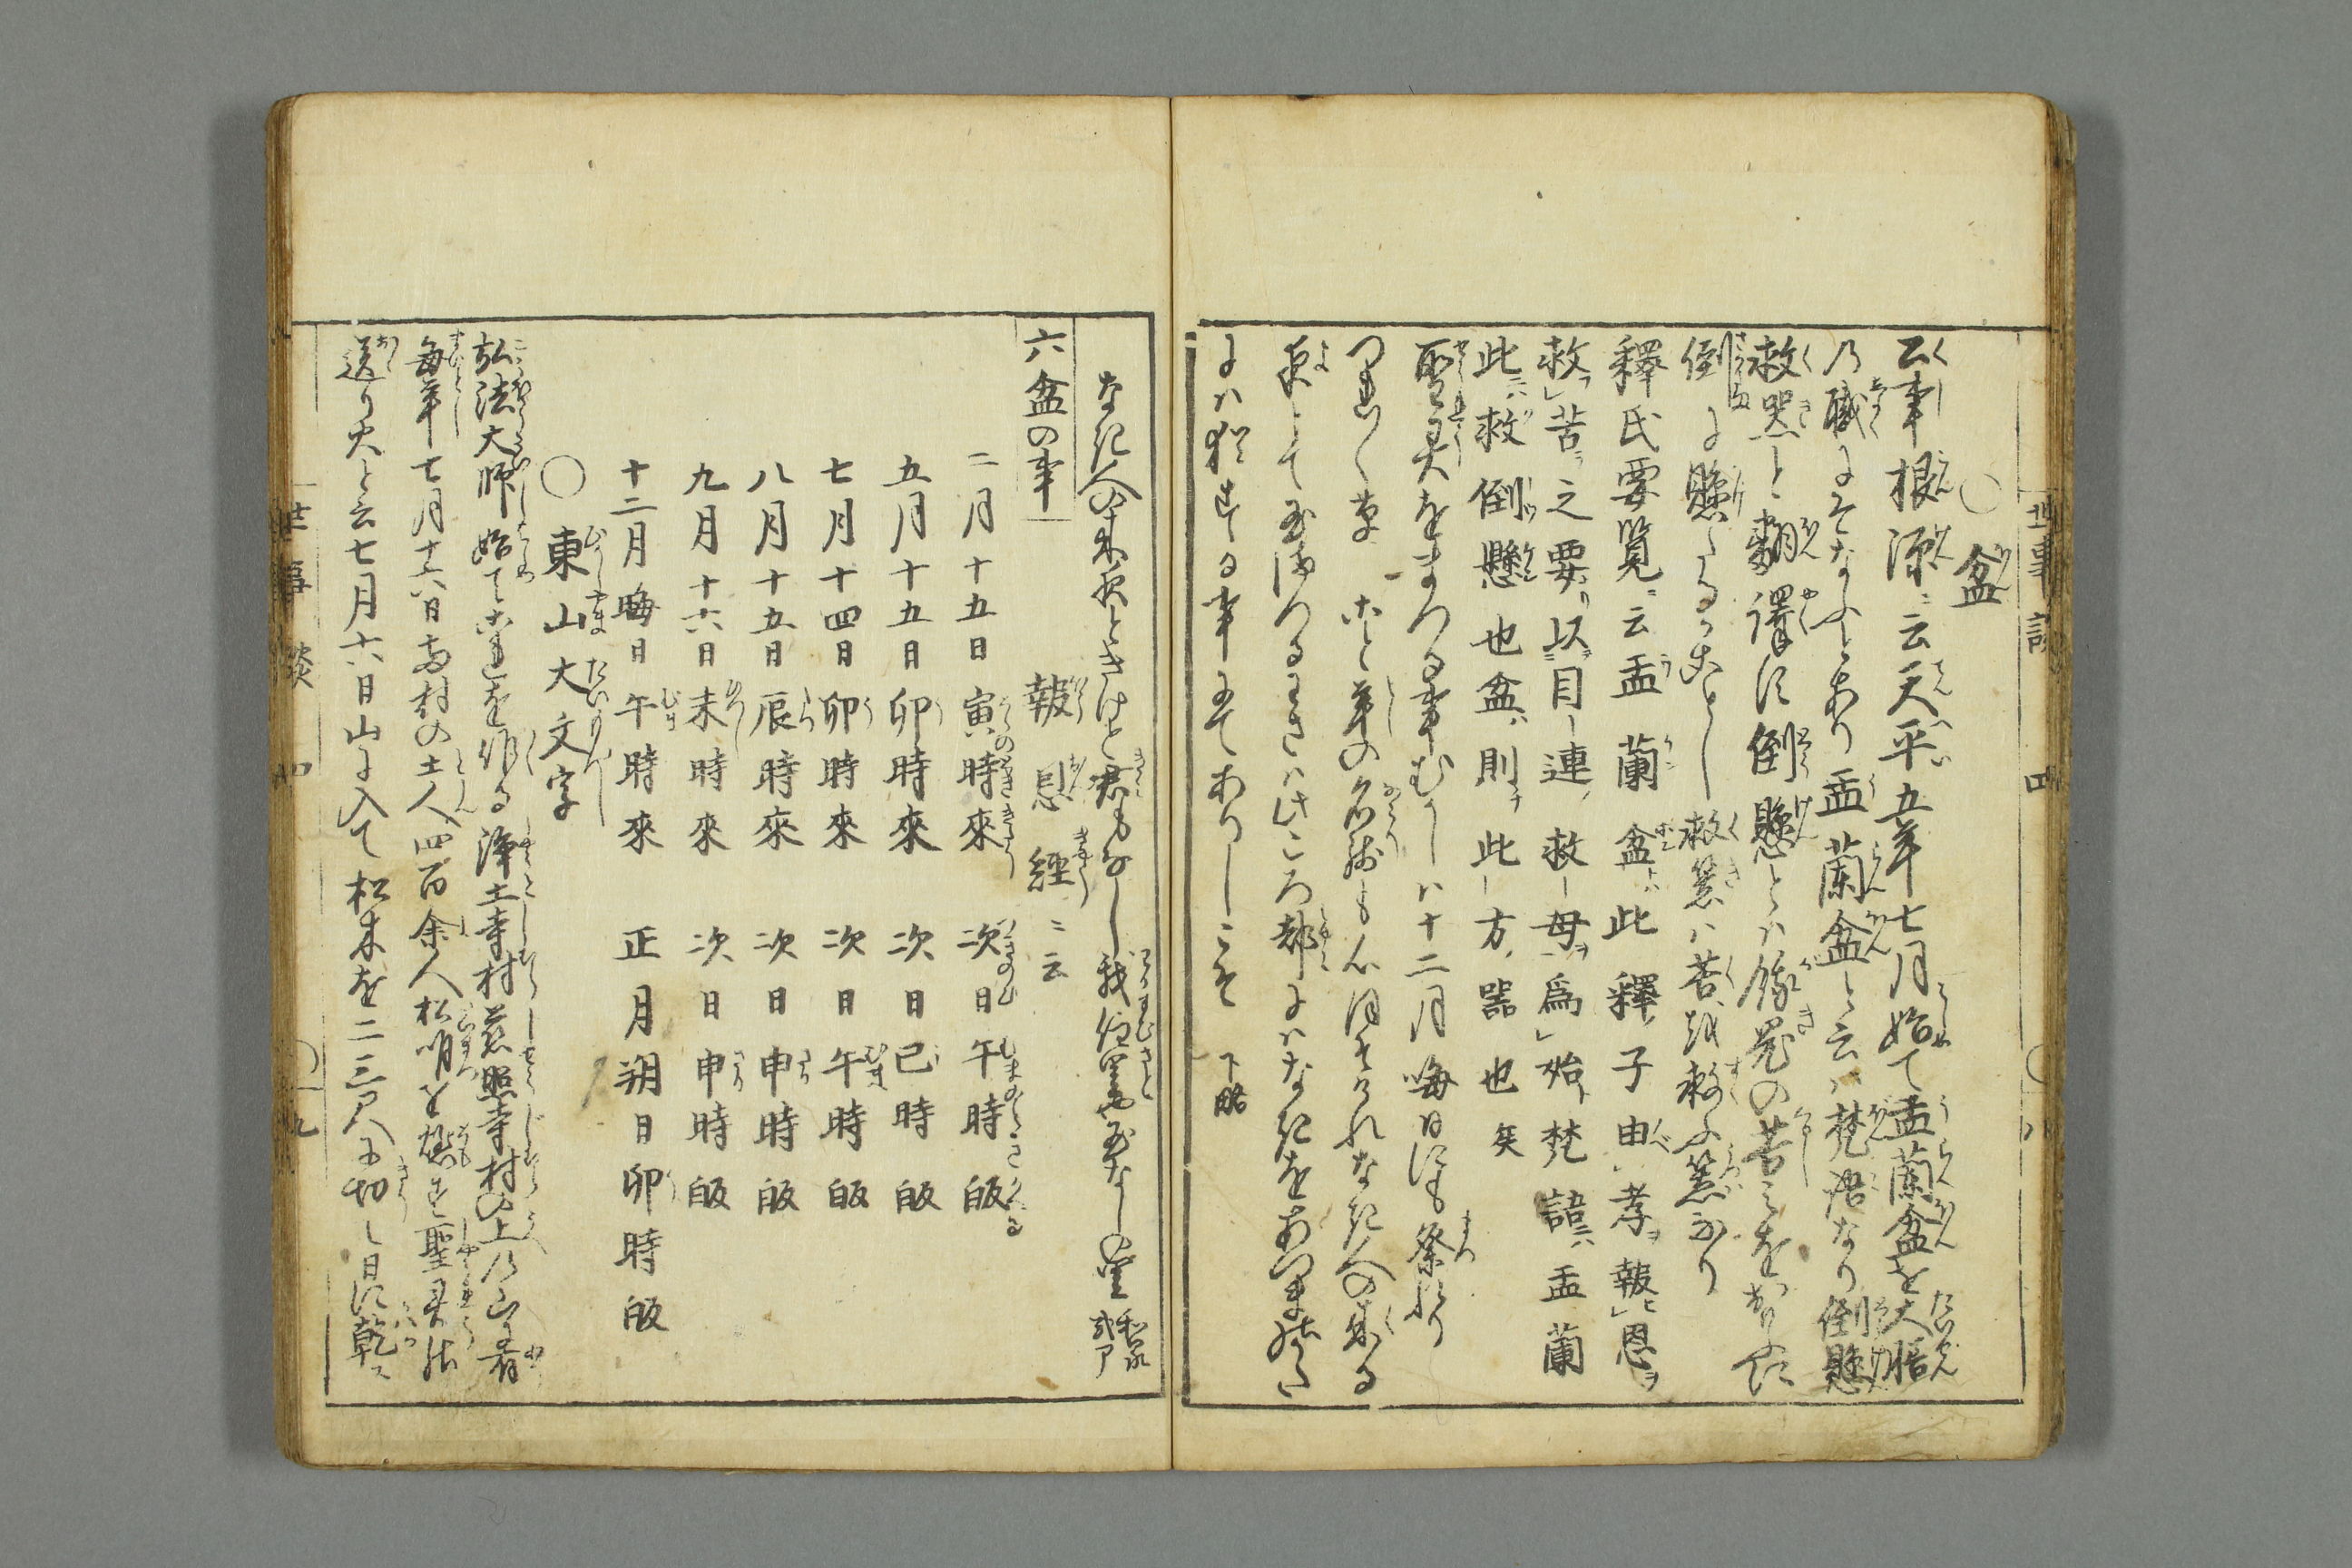 世事談 四
○盆
公事根源ニ云天平五年七月始て盂蘭盆を大膳
の職にそなふとあり盂蘭盆と云ハ梵語なり倒懸
救器と翻譯す倒懸とハ餓鬼の苦しみを
倒に懸たるがことし救器ハ苦を救ふ器なり
釋氏要覧ニ云盂蘭盆ハ此釋子由孝報恩ヲ
救苦之要以目連救母爲始梵語ニハ盂蘭
此ニハ救倒懸也盆ハ則此方ノ器也矣
聖灵をまつる事むかしハ十二月晦日にも祭れり
つれ〱草ニ云年の名残も心ほそけれなき人の来る
夜とて玉まつるわさハ此ころ都にハなきをあつまのかた
にハ猶する事にてありしこそ 下略
なき人の来る夜ときけと君もなし我住里や玉なしの里 和泉式部
六盆の事 報恩經ニ云
二月十五日寅時來 次日午時皈
五月十五日卯時來 次日巳時皈
七月十四日卯時來 次日午時皈
八月十五日辰時來 次日申時皈
九月十六日未時來 次日申時皈
十二月晦日午時來 正月朔日卯時皈
○東山大文字
弘法大師始てこれを作る浄土寺村慈照寺村の上の山に有
毎年七月十六日両村の土人四百余人松明を燈す聖灵の
送り火と云七月十六日山に入て松木を二三尺に切し日に乾ス
世事談 四 ○九